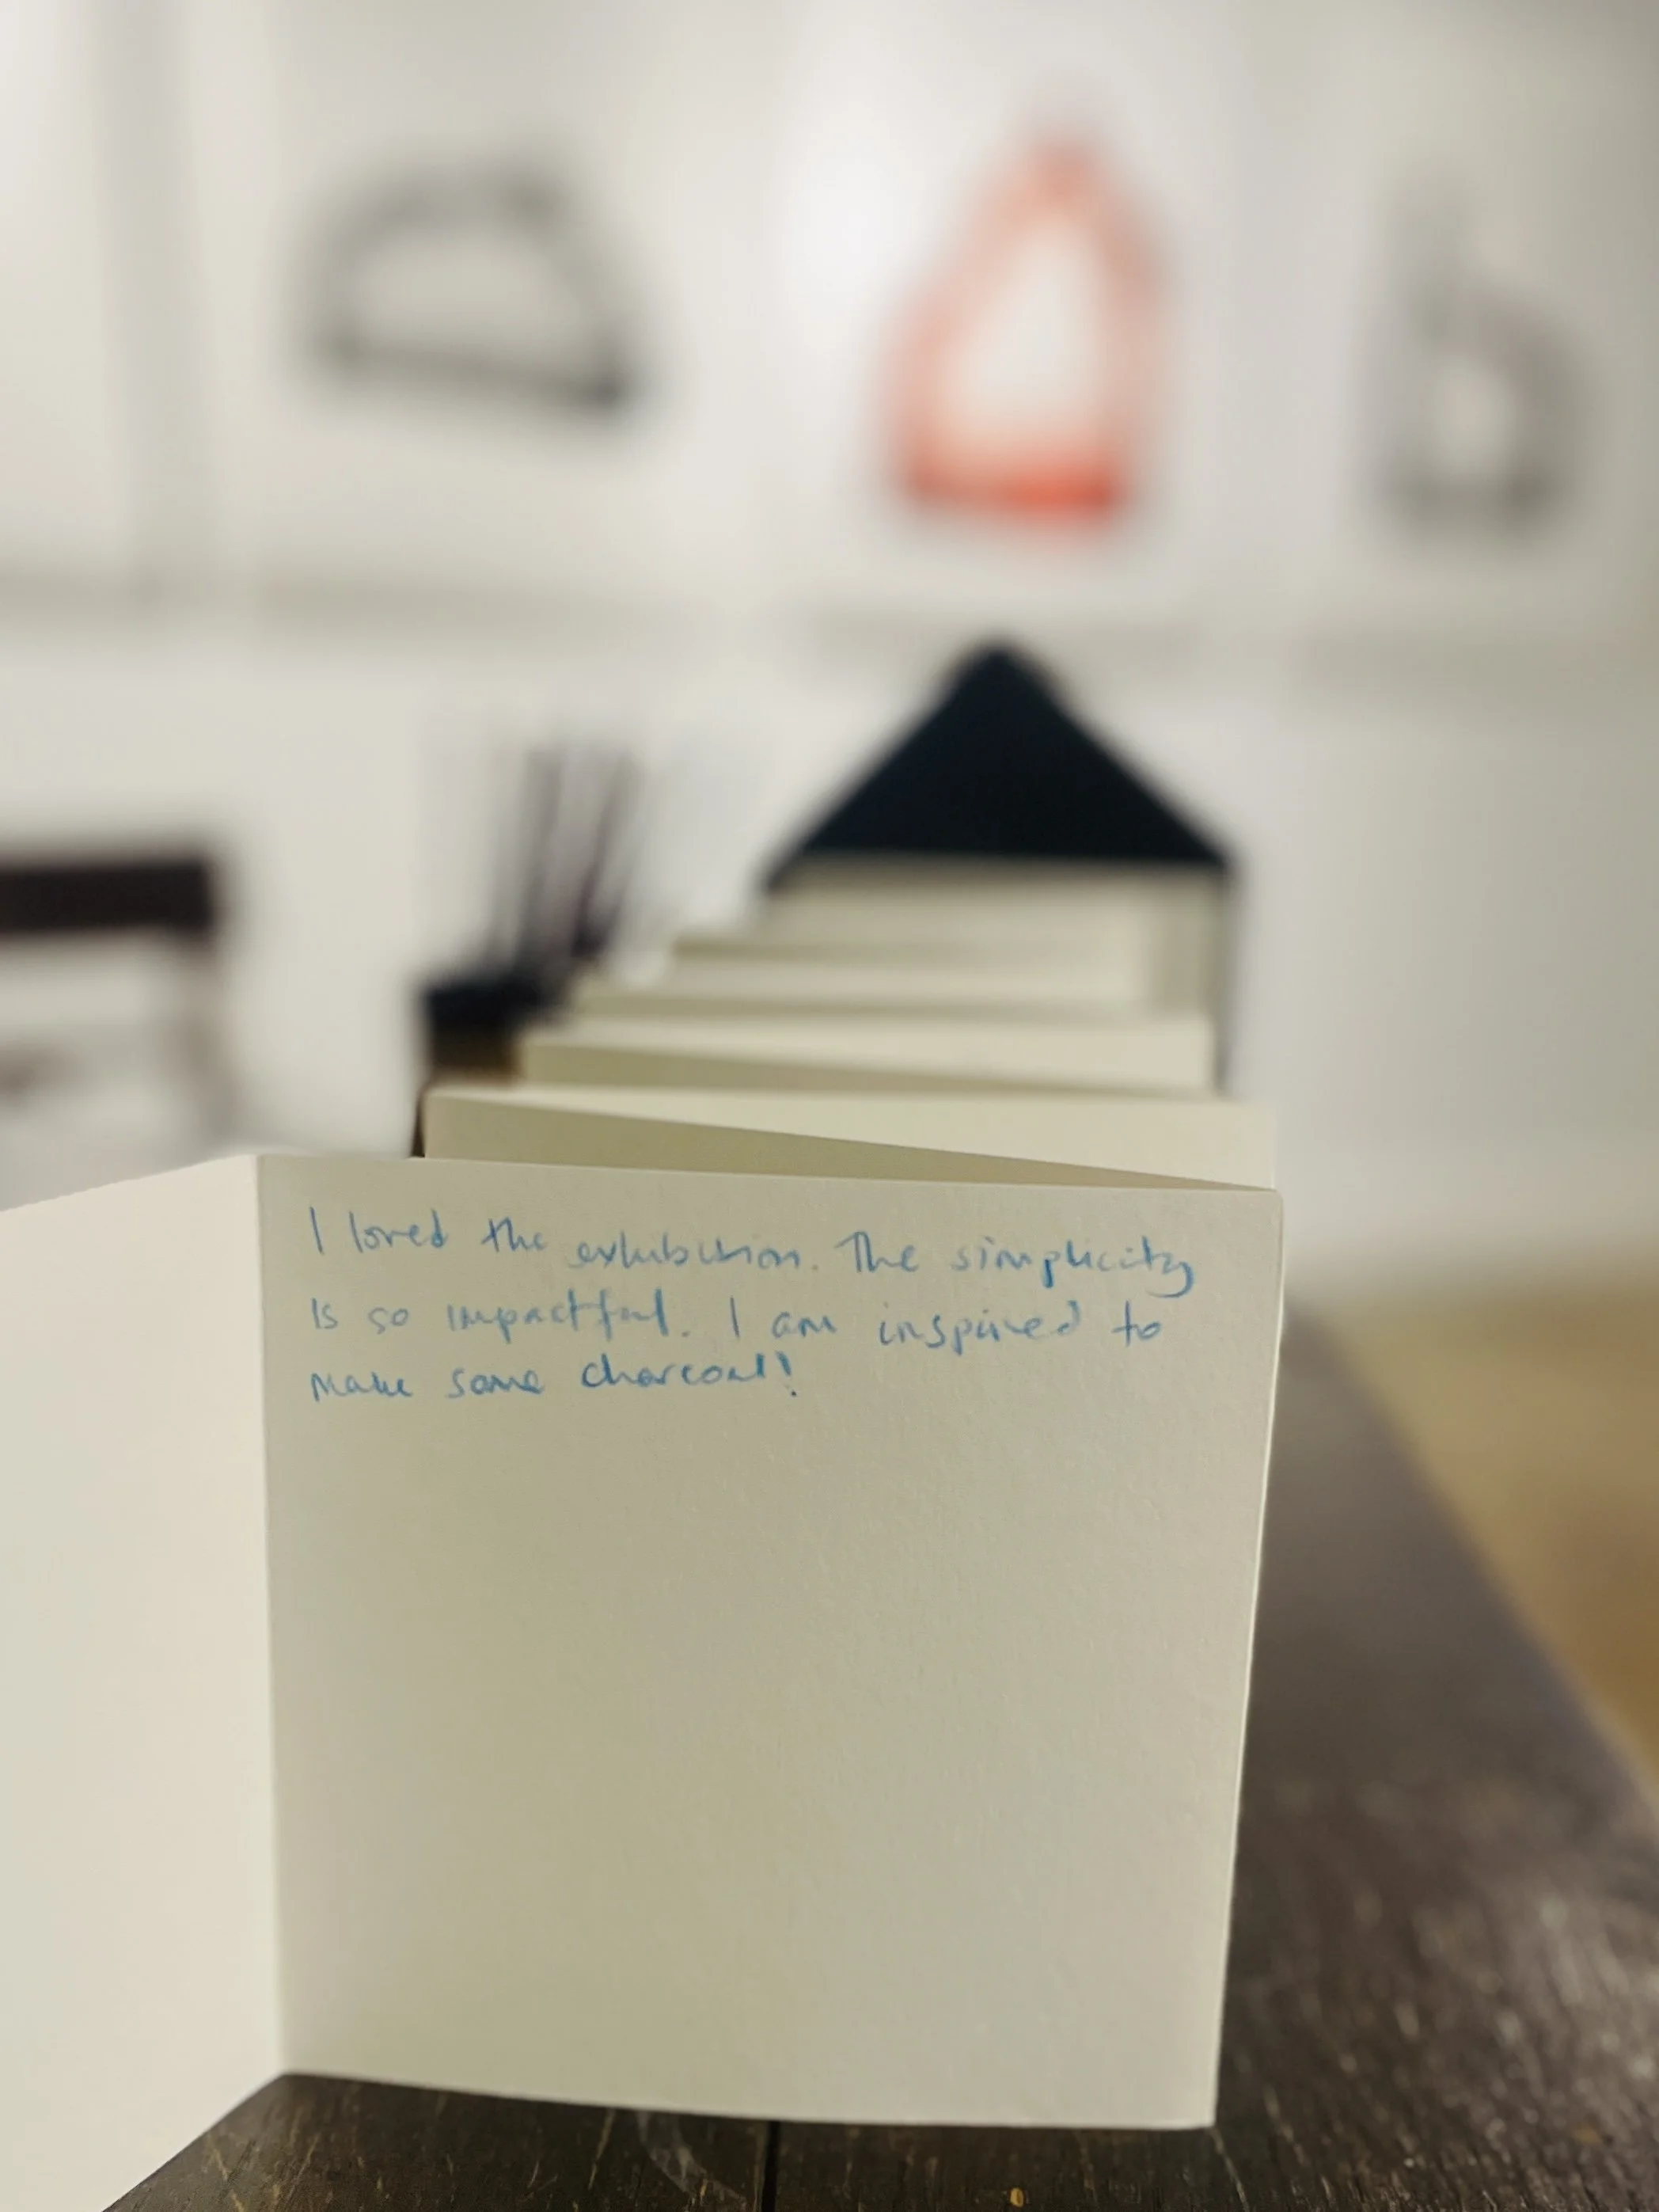 I loved the exhibition. The simplicity
is so impactful. I am inspired to
make some charcoal!